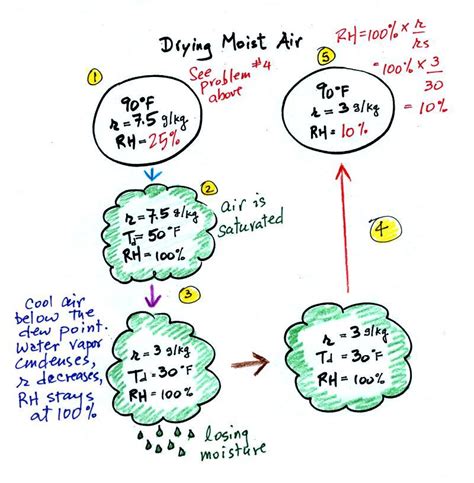 Drying Moist Air
1
See
Problem #4
above
90°F
r = 7.5 g/kg
RH = 25%
2
r = 7.5 g/kg
Td = 50°F
RH = 100%
air is
saturated
3
Cool air
below the
dew point.
Water vapor
condenses,
r decreases,
RH stays
at 100%
r = 3 g/kg
Td = 30°F
RH = 100%
losing
moisture
r = 3 g/kg
Td = 30°F
RH = 100%
4
5
90°F
r = 3 g/kg
RH = 10%
RH = 100% × r/rs
= 100% × 3/30
= 10%